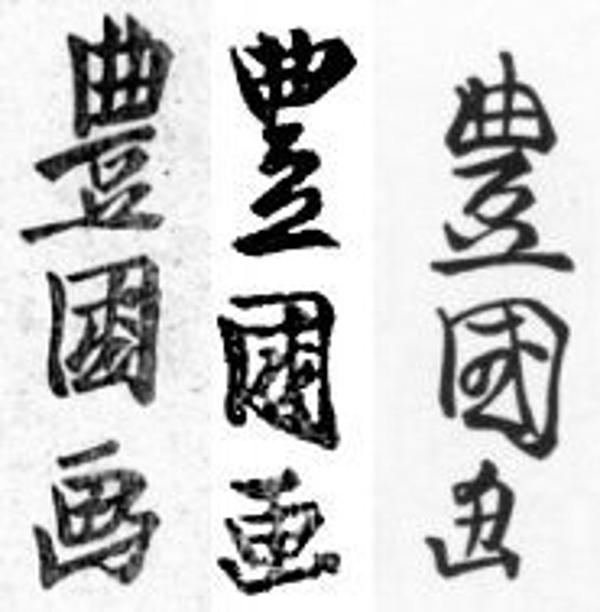 豊國画
豊國画
豊國画